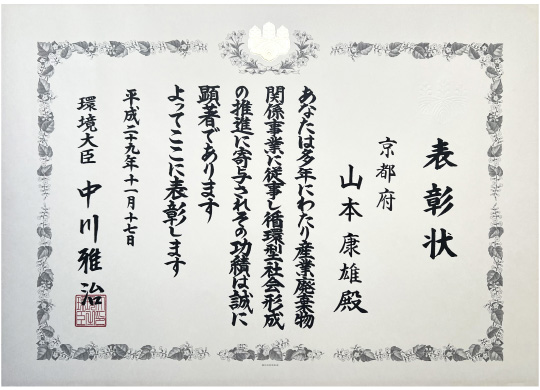 表彰状
京都府
山本康雄殿
あなたは多年にわたり産業廃棄物
関係事業に従事し循環型社会形成
の推進に寄与されその功績は誠に
顕著であります
よってここに表彰します
平成二十九年十一月十七日
環境大臣 中川雅治